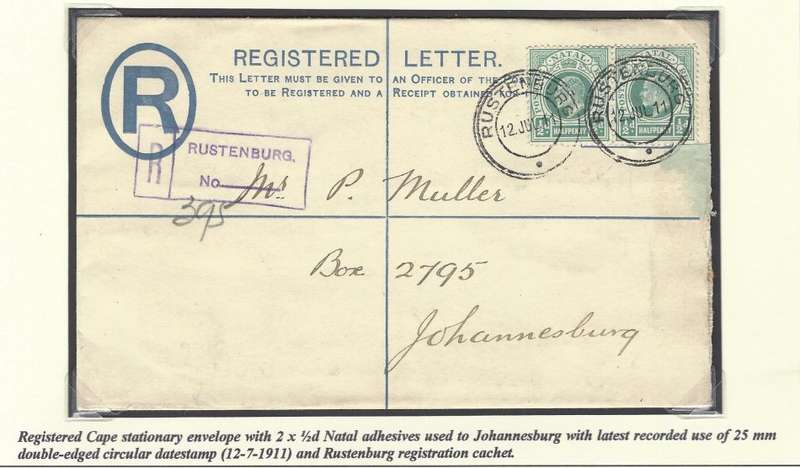 REGISTERED LETTER.
THIS LETTER MUST BE GIVEN TO AN OFFICER OF THE
TO BE REGISTERED AND A RECEIPT OBTAINED
R
NATAL
HALFPENNY
½d
NATAL
½d HALFPENNY ½d
RUSTENBURG
12 JUL 11
RUSTENBURG
12 JUL 11
R RUSTENBURG.
No
395
Mr P. Muller
Box 2795
Johannesburg
Registered Cape stationary envelope with 2 x ½d Natal adhesives used to Johannesburg with latest recorded use of 25 mm
double-edged circular datestamp (12-7-1911) and Rustenburg registration cachet.